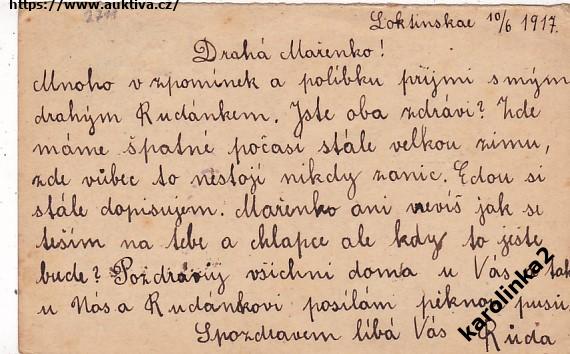 https://www.auktiva.cz/
2711
Loktinskae 10/6 1917.
Drahá Mařenko!
Mnoho vzpomínek a políbku prijmi s mým
drahým Rudánkem. Jste oba zdrávi? Zde
máme špatné počasi stále velkou zimu,
zde vůbec to nestojí nikdy zanic. Edou si
stále dopisujem. Mařenko ani nevíš jak se
teším na tebe a chlapce ale kdy to ješte
bude? Pozdravij všichni doma u Vás tak
u Nás a Rudánkovi posílám pěknou pusu.
Spozdravem líbá Vás Rúda
karolinka2